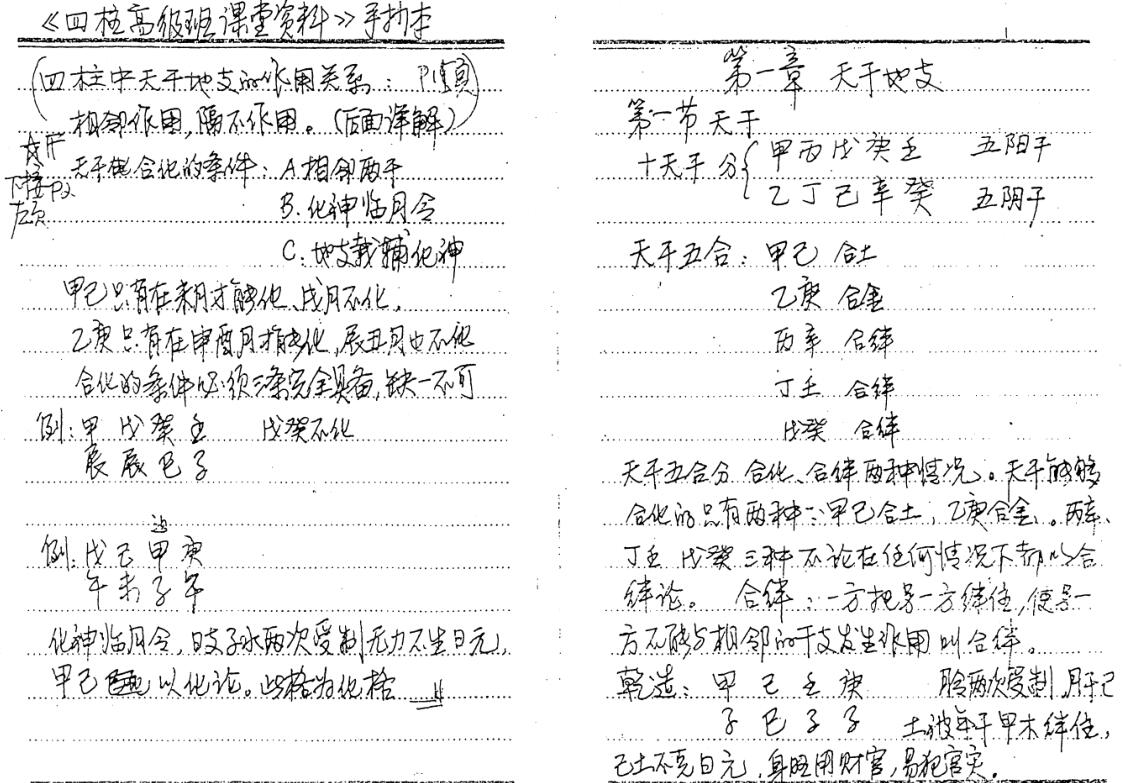 《四柱高级班课堂资料》手抄本
(四柱中天干地支的作用关系:
相邻作用,隔不作用。(后面详解))
下接P2
左页
天干合化的条件:A相邻两干
B.化神临月令
C.地支载辅化神
甲己只有在未月才能化、戌月不化.
乙庚只有在申酉月才能化,辰丑月也不化
合化的条件必须三条完全具备,缺一不可
例:甲 戊 癸 壬 戊癸不化
辰 辰 巳 子
例:戊 己 甲 庚
午 未 子 午
化神临月令,日支子水两次受制无力不生日元,
甲己以化论。此格为化格
第一章 天干地支
第一节 天干
十天干分{甲丙戊庚壬 五阳干
乙丁己辛癸 五阴干
天干五合:甲己 合土
乙庚 合金
丙辛 合绊
丁壬 合绊
戊癸 合绊
天干五合分 合化、合绊两种情况。天干能够
合化的只有两种:甲己合土,乙庚合金。丙辛、
丁壬 戊癸三种不论在任何情况下都以合
绊论。 合绊:一方把另一方绊住,使另一
方不能与相邻的干支发生作用叫合绊。
乾造:甲 己 壬 庚 两次受制,月干己
子 巳 子 子 土被年干甲木绊住,
己土不克日元,身旺用财官,易犯官灾.